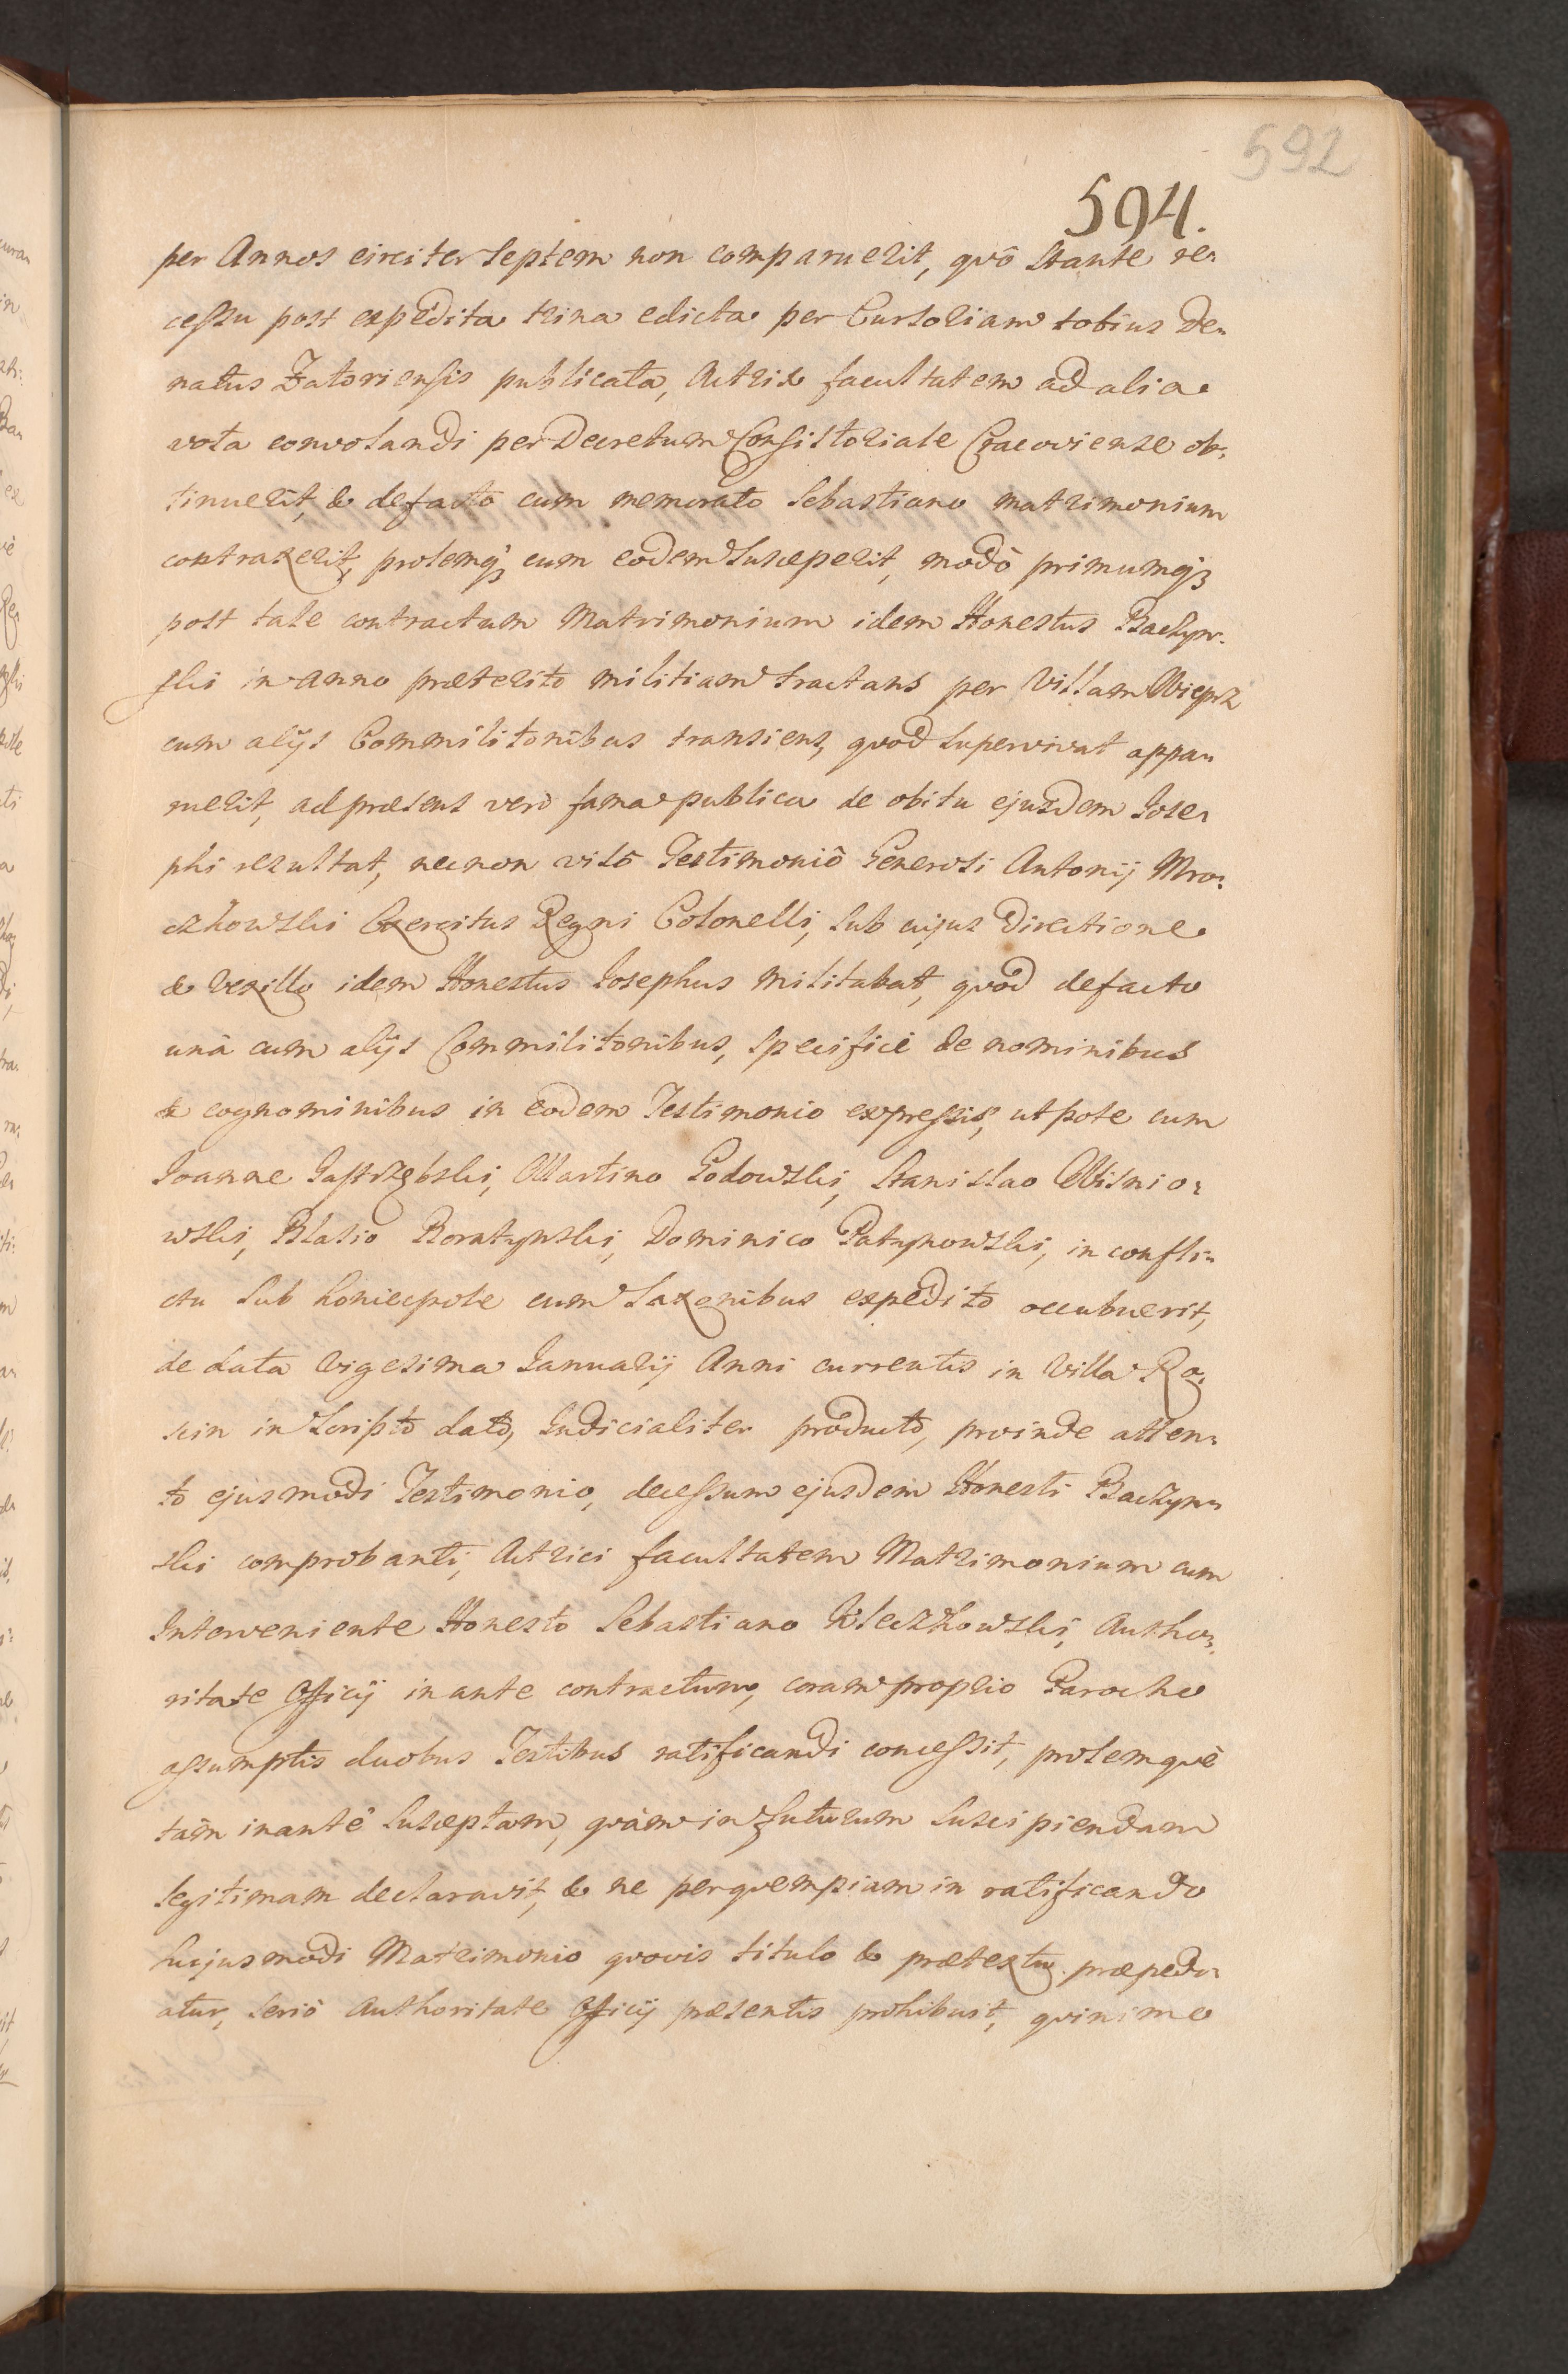 592
594.
per Annos circiter septem non comparuerit, quô stante re-
cessu post expedita trina edicta per Cursoriam totius De-
natus Zatoriensis publicata, Actrix facultatem ad alia
vota convolandi per Decretum Consistoriale Cracoviense ob-
tinuerit, & defacto cum memorato Sebastiano matrimonium
contraxerit, prolemq3 cum eodem susceperit, modò primumq3
post tale contractum Matrimonium idem Honestus Baczyn-
ski in anno præterito militiam tractans per Villam Wieprz
cum alijs Commilitonibus transiens, quod supervivat appa-
ruerit, ad præsens verò fama publica de obitu ejusdem Jose-
phi resultat, necnon visô Testimoniô Generosi Antonij Mro-
czkowski Exercitus Regni Colonelli, sub cujus Directione
& Vexillo idem Honestus Josephus militabat, quod defacto
unà cum alijs Commilitonibus, specificè de nominibus
& cognominibus in eodem Testimonio expressis, utpote cum
Joanne Jastrzębski, Martino Godowski, Stanislao Wisnio-
wski, Blasio Boratynski, Dominico Patynowski, in confli-
ctu sub Koniecpole cum Saxonibus expedito occubuerit,
de data Vigesima Januarij Anni currentis in Villa Ro-
scin in scripto dato, Judicialiter producto, proinde atten-
to ejusmodi Testimonio, decessum ejusdem Honesti Baczyn-
ski comprobanti, Actrici facultatem Matrimonium cum
Interveniente Honesto Sebastiano Kleczkowski, Autho-
ritate Officij inante contractum, coram proprio Parocho
assumptis duobus Testibus ratificandi concessit, prolemquè
tàm inantè susceptam, quàm in futurum suscipiendam
legitimam declaravit, & ne perquempiam in ratificando
hujusmodi Matrimonio quovis titulo & prætextu præpedi-
atur, seriò Authoritate Officij præsentis prohibuit, quinimo